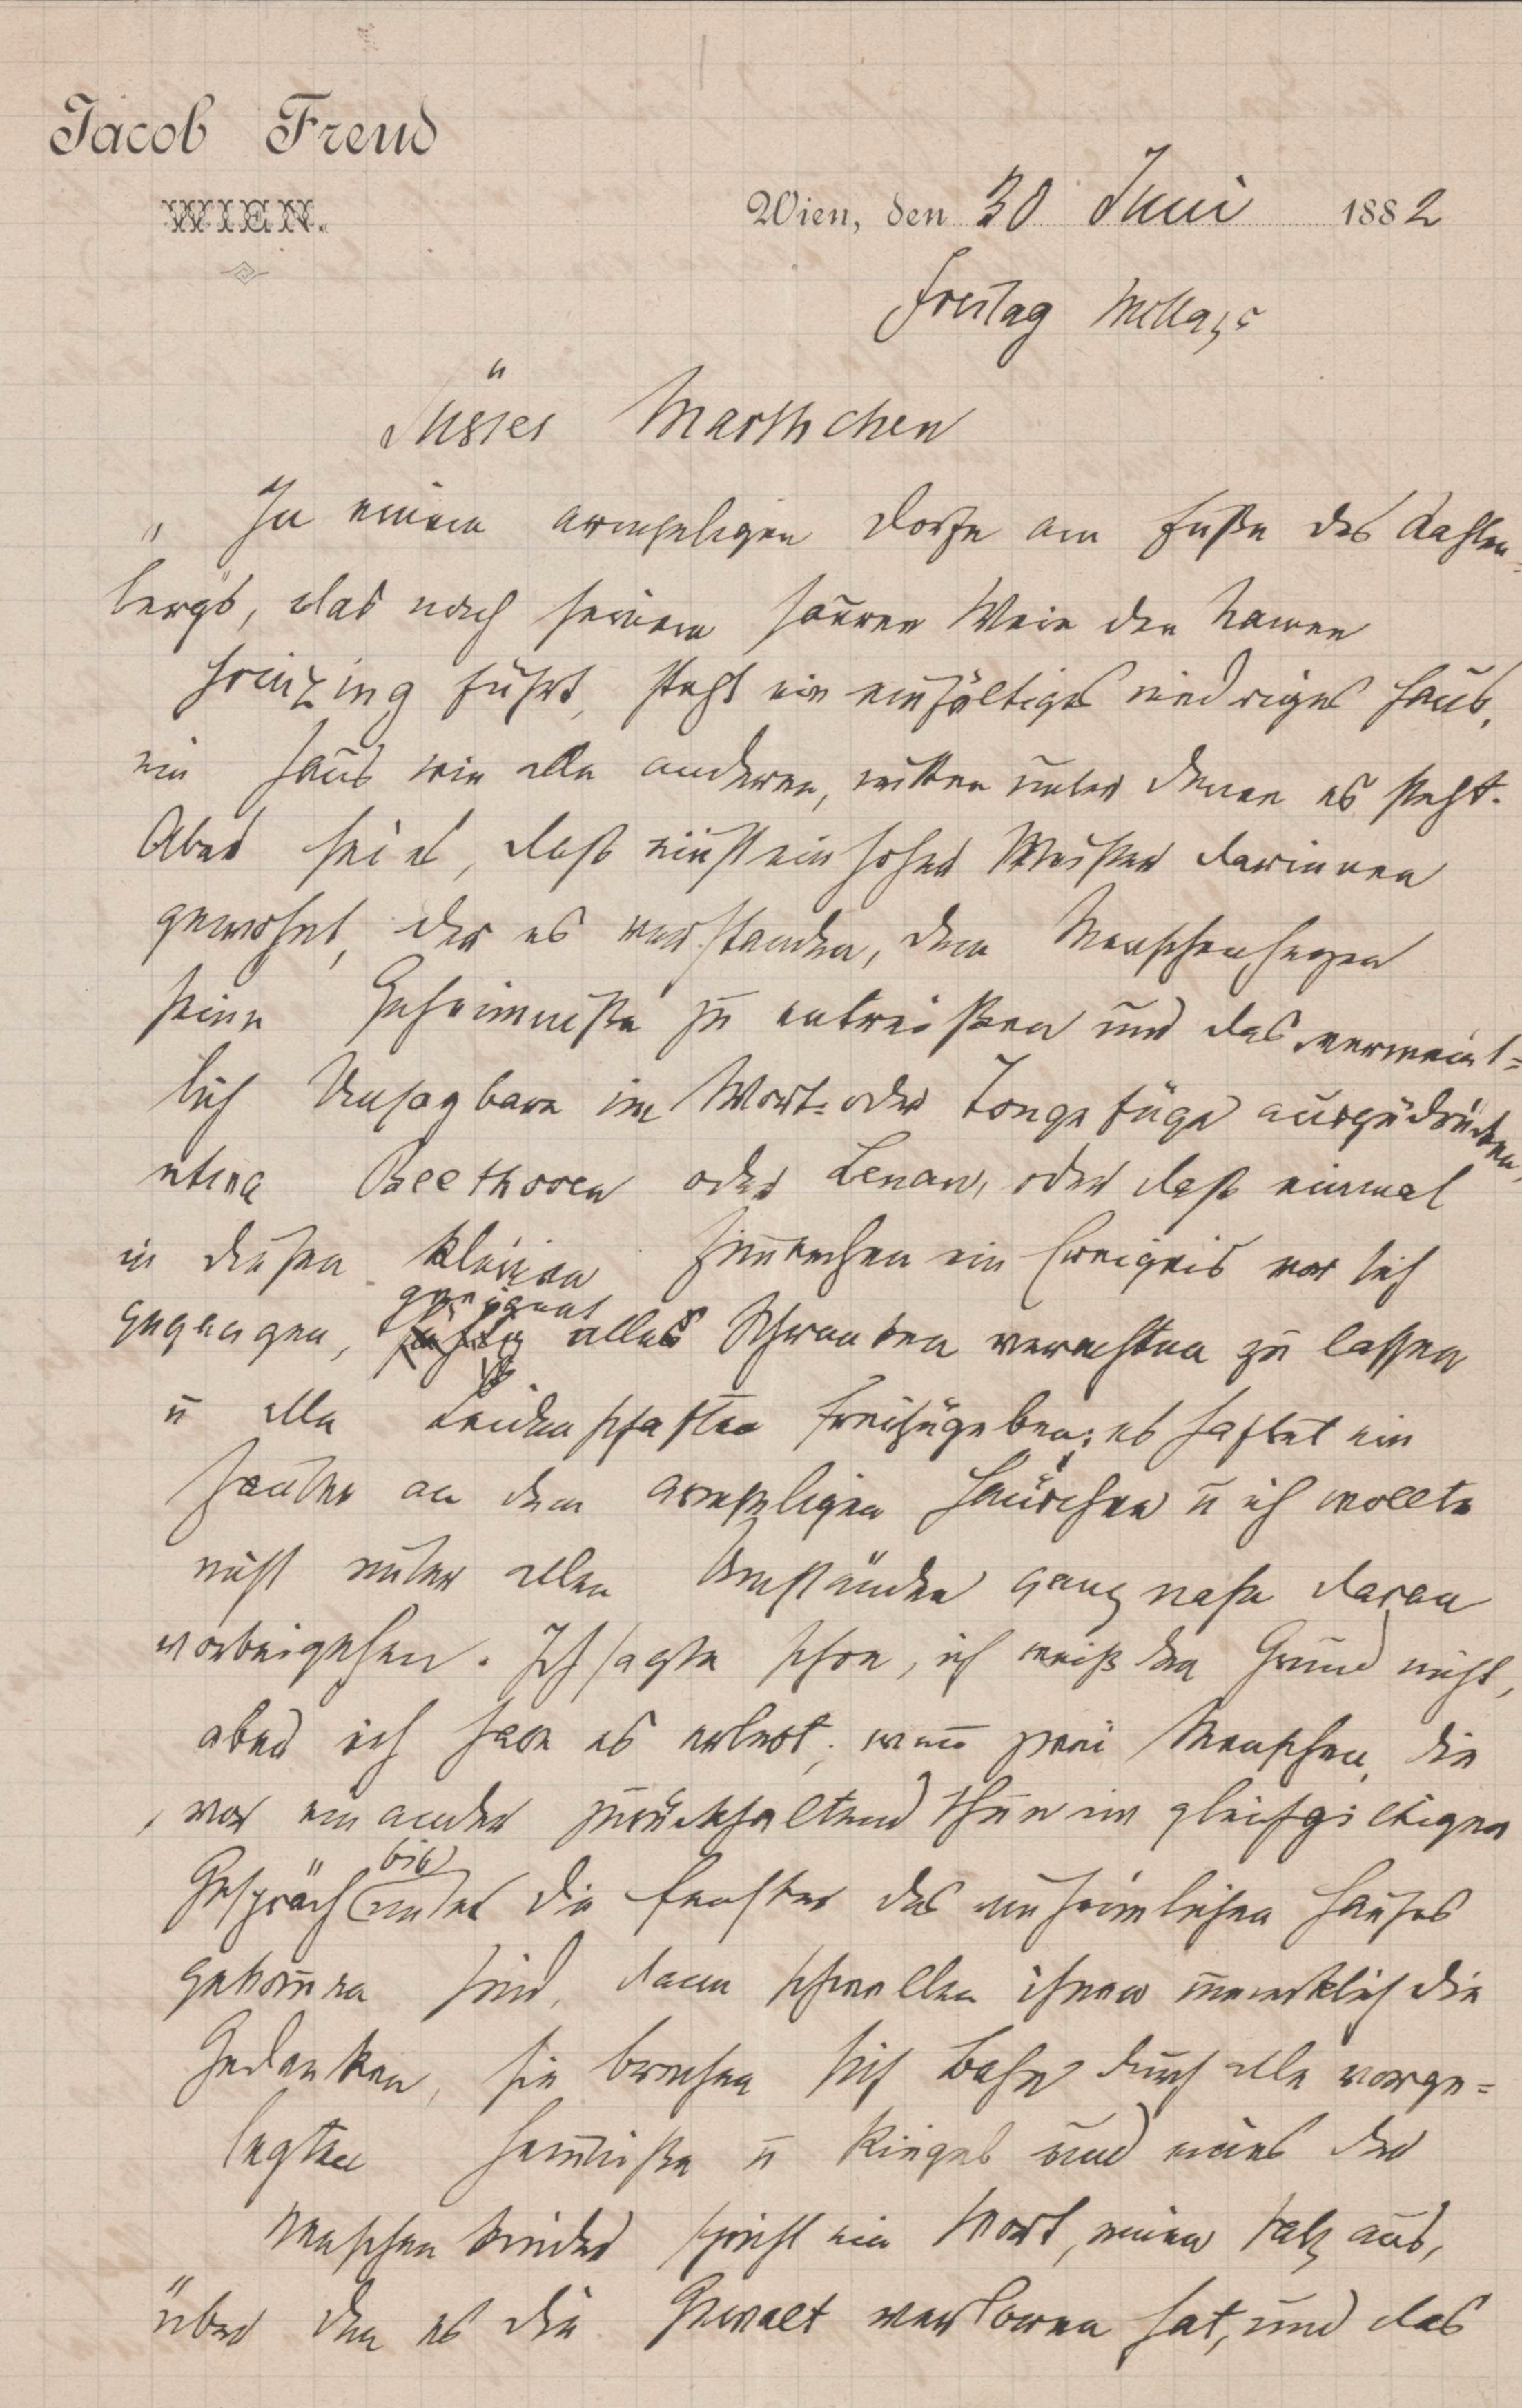 Jacob Freud
WIEN.
Wien, den 30 Juni 1882
Freitag Mittags
Süsses Marthchen
„In einem armseligen Dorfe am Fuße des Kahlen-
bergs, das nach seinem sauren Wein den Namen
Grinzing führt, steht ein einfältiges niedriges Haus,
ein Haus wie alle anderen, mitten unter denen es steht.
Aber sei es, daß einst ein hoher Meister darinnen
gewohnt, der es verstanden, dem Menschenherzen
seine Geheimniße zu entreißen und das vermeint=
lich Unsagbare im Wort= oder Tongefüge auszudrücken,
etwa Beethoven oder Lenau, oder daß einmal
in diesen kleinen Zimmerchen ein Ereignis vor sich
gegangen, geeignet alles Schwanken verachten zu lassen
u alle Leidenschaften freizugeben; es haftet ein
Zauber an dem armseligen Häuschen u ich wollte
nicht unter allen Umständen ganz nahe daran
vorbeigehen. Ich sagte schon, ich weiß den Grund nicht,
aber ich habe es erlebt; wenn zwei Menschen, die
vor einander zurückhaltend thun im gleichgiltigen
Gespräch bis unter die Fenster des unheimlichen Hauses
gekommen sind, dann schwellen ihnen merklich die
Gedanken, sie brechen sich Bahn durch alle vorge=
legten Hemmniße u Riegel und eines der
Menschenkinder spricht ein Wort, einen Satz aus,
über den es die Gewalt verloren hat, und das